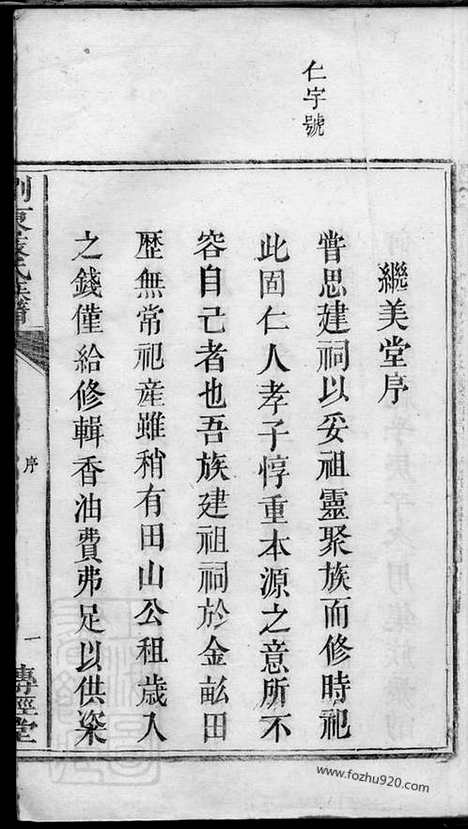 仁字號
繼美堂序
嘗思建祠以妥祖靈聚族而修時祀
此固仁人孝子惇重本源之意所不
容自己者也吾族建祖祠於金畝田
歷無常祀產雖稍有田山公租歲入
之錢僅給修輯香油費弗足以供粢
序
一
傳經堂
www.fozhu920.com